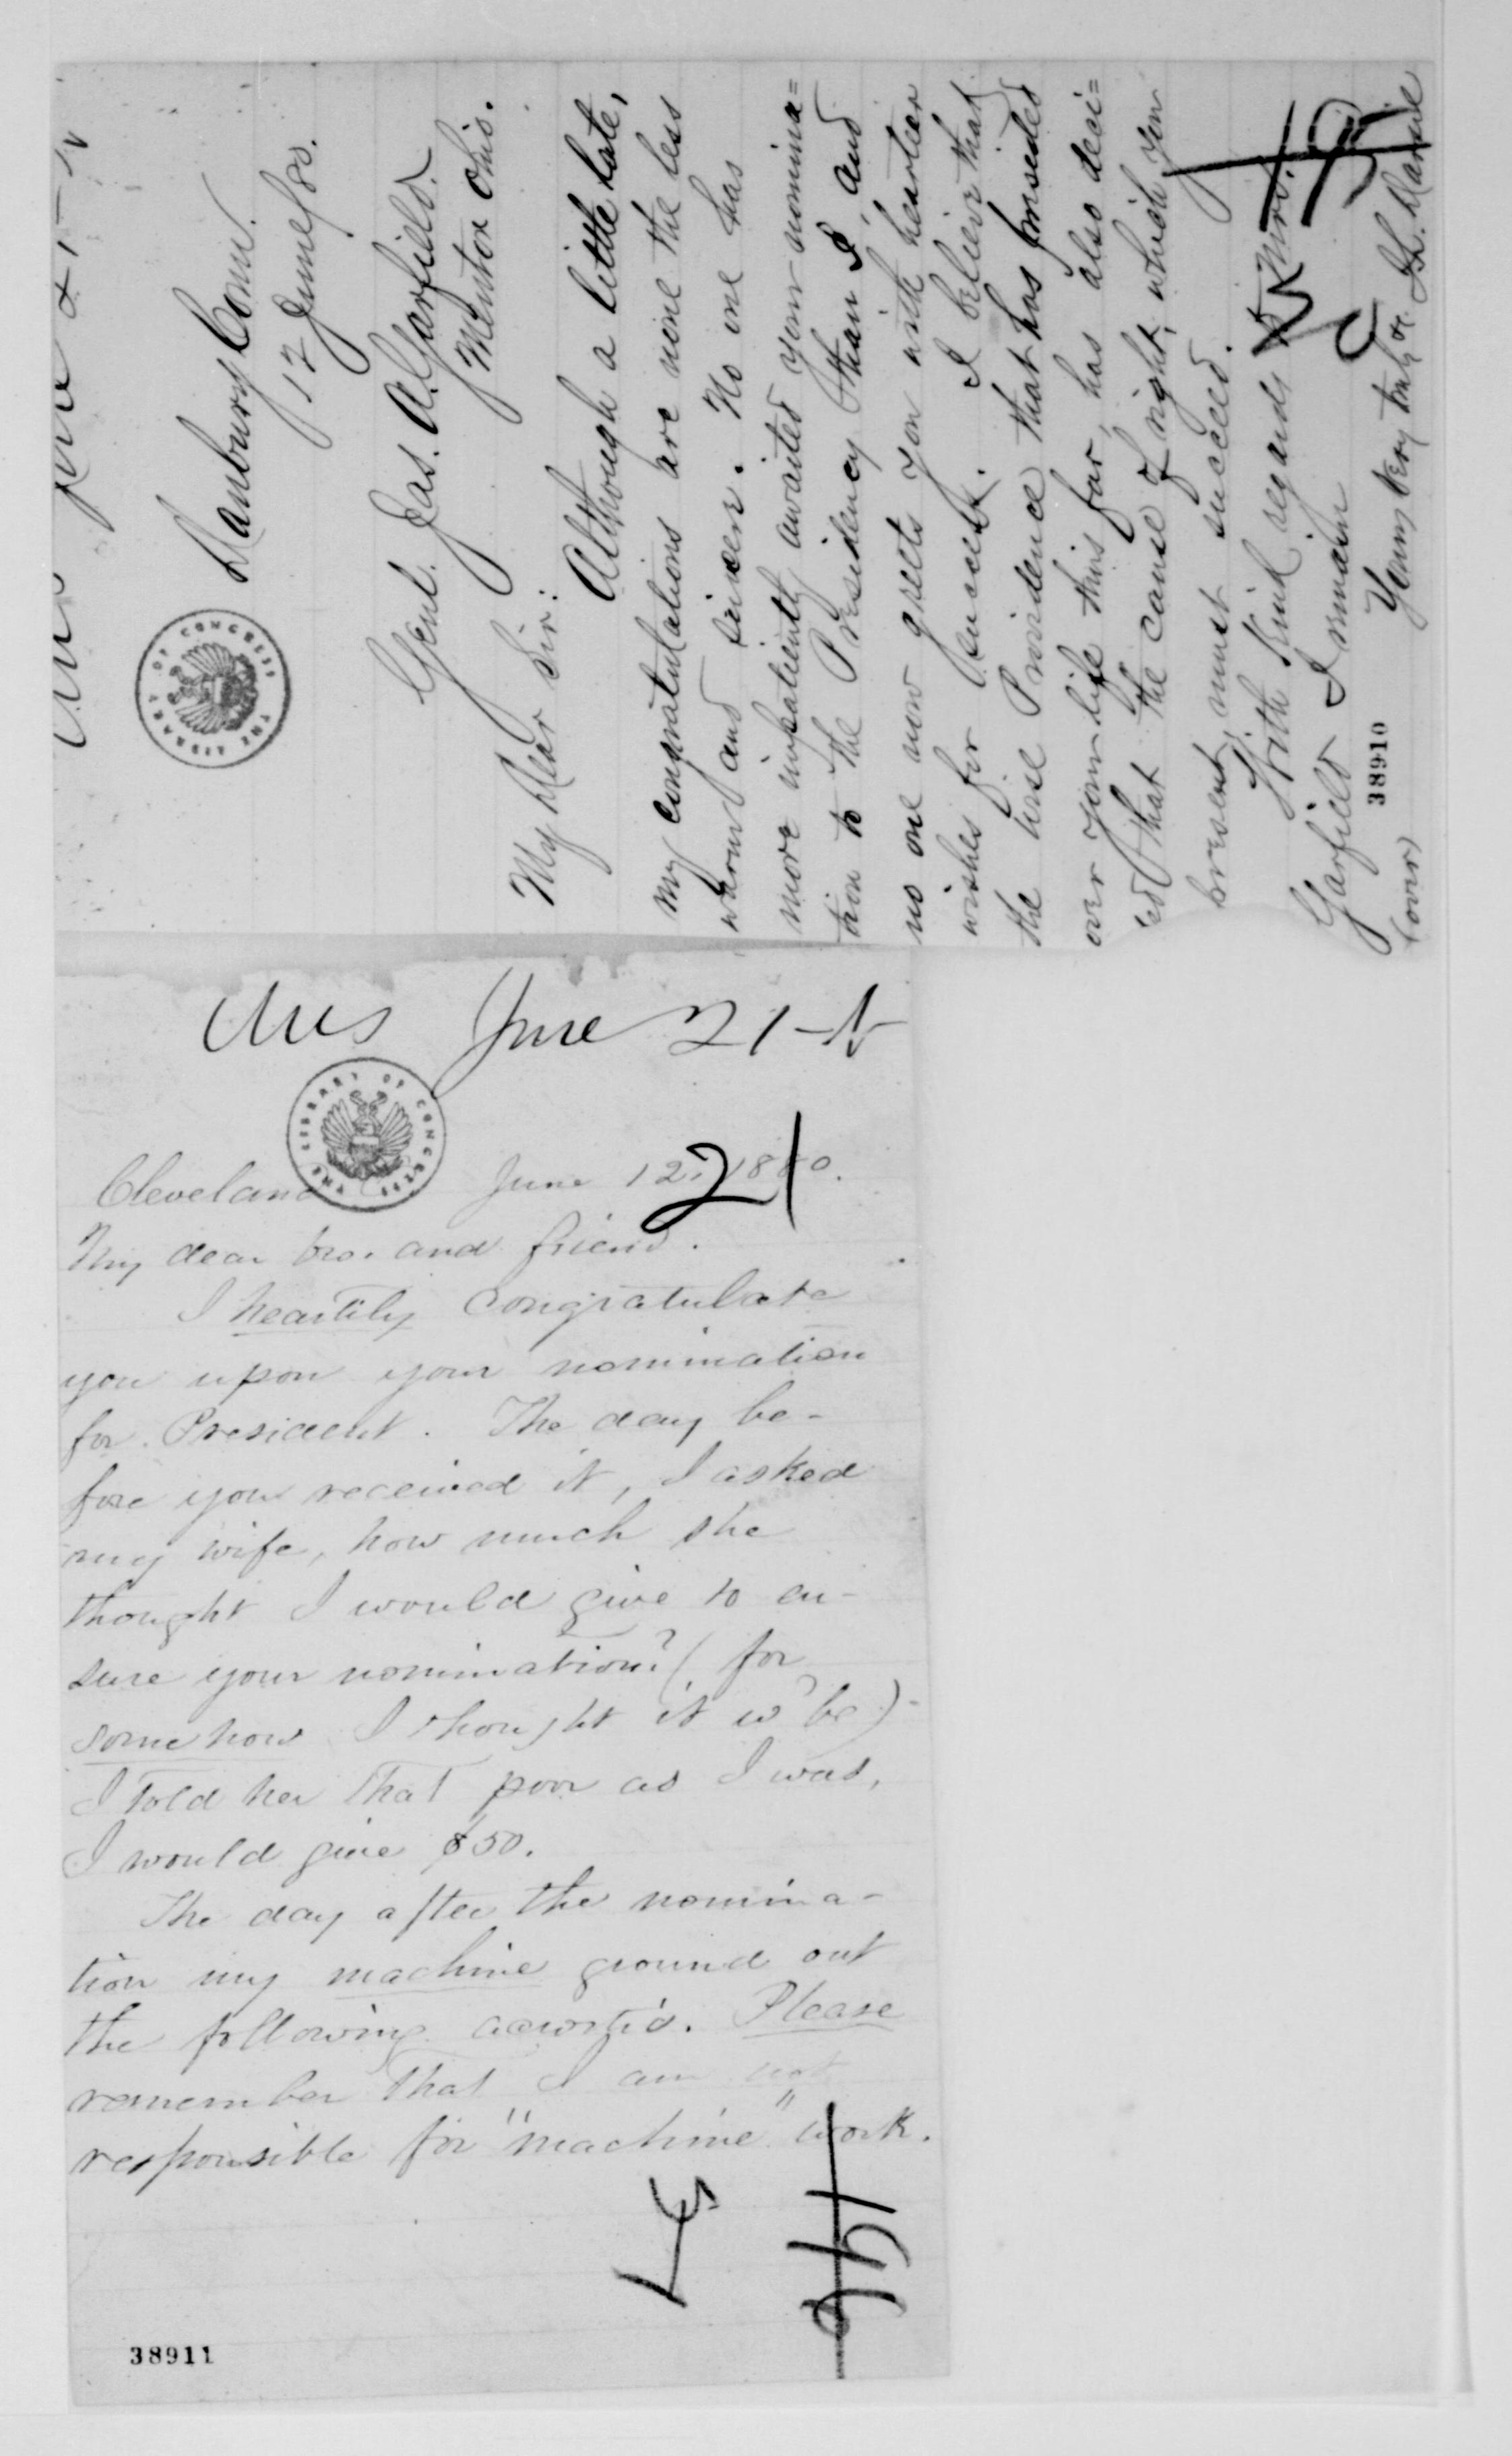 Ans June 21-N
THE LIBRARY OF CONGRESS
Danbury Conn.
12 June/80.
Genl. Jas. A. Garfield.
Mentor Ohio.
My dear Sir:
Although a little late,
my congratulations are none the less
warm and sincere. No one has
more impatiently awaited your nomina=
tion to the Presidency than I, and
no one now greets you with heartier
wishes for success. I believe that
the wise Providence that has presided
over your life thus far, has also deci=
'ed that the cause of right, which you
present, must succeed.
With kind regards to Mrs.
Garfield I remain
Yours very truly &c.
(over)
38910
Ans June 21-N
THE LIBRARY OF CONGRESS
Cleveland June 12, 1880.
21
My dear bro. and friend.
I heartily congratulate
you upon your nomination
for President. The day be-
fore you received it, I asked
my wife, how much she
thought I would give to en-
sure your nomination? (for
somehow I thought it wd be)-
I told her that poor as I was,
I would give $50.
The day after the nomina-
tion my machine ground out
the following acrostic. Please
remember that I am not
responsible for "machine" work.
38911